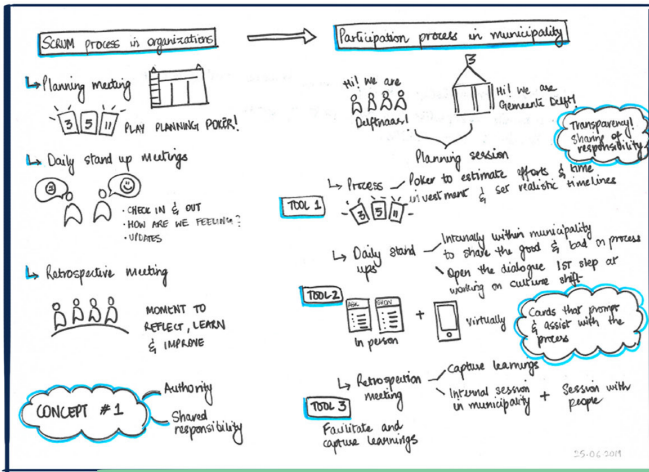 SCRUM process in organizations
Participation process in municipality
Planning meeting
3 5 11 PLAY PLANNING POKER!
Daily stand up meetings
• CHECK IN & OUT
• HOW ARE WE FEELING?
• UPDATES
Retrospective meeting
MOMENT TO
REFLECT, LEARN
& IMPROVE
CONCEPT #1
Authority
Shared
responsibility
Hi! We are
Delftenaar!
Hi! We are
Gemeente Delft!
Planning session
Transparency!
Sharing of
responsibility
TOOL 1
Process
Poker to estimate efforts & time
investment & set realistic timelines
3 5 11
Daily stand
ups
Internally within municipality
to share the good & bad on process
Open the dialogue 1ST step at
working on culture shift
TOOL 2
In person
+
virtually
Cards that prompt
& assist with the
process
TOOL 3
Retrospection
meeting
Capture learnings
Internal session
in municipality
+
Session with
people
Facilitate and
capture learnings
25-06 2019